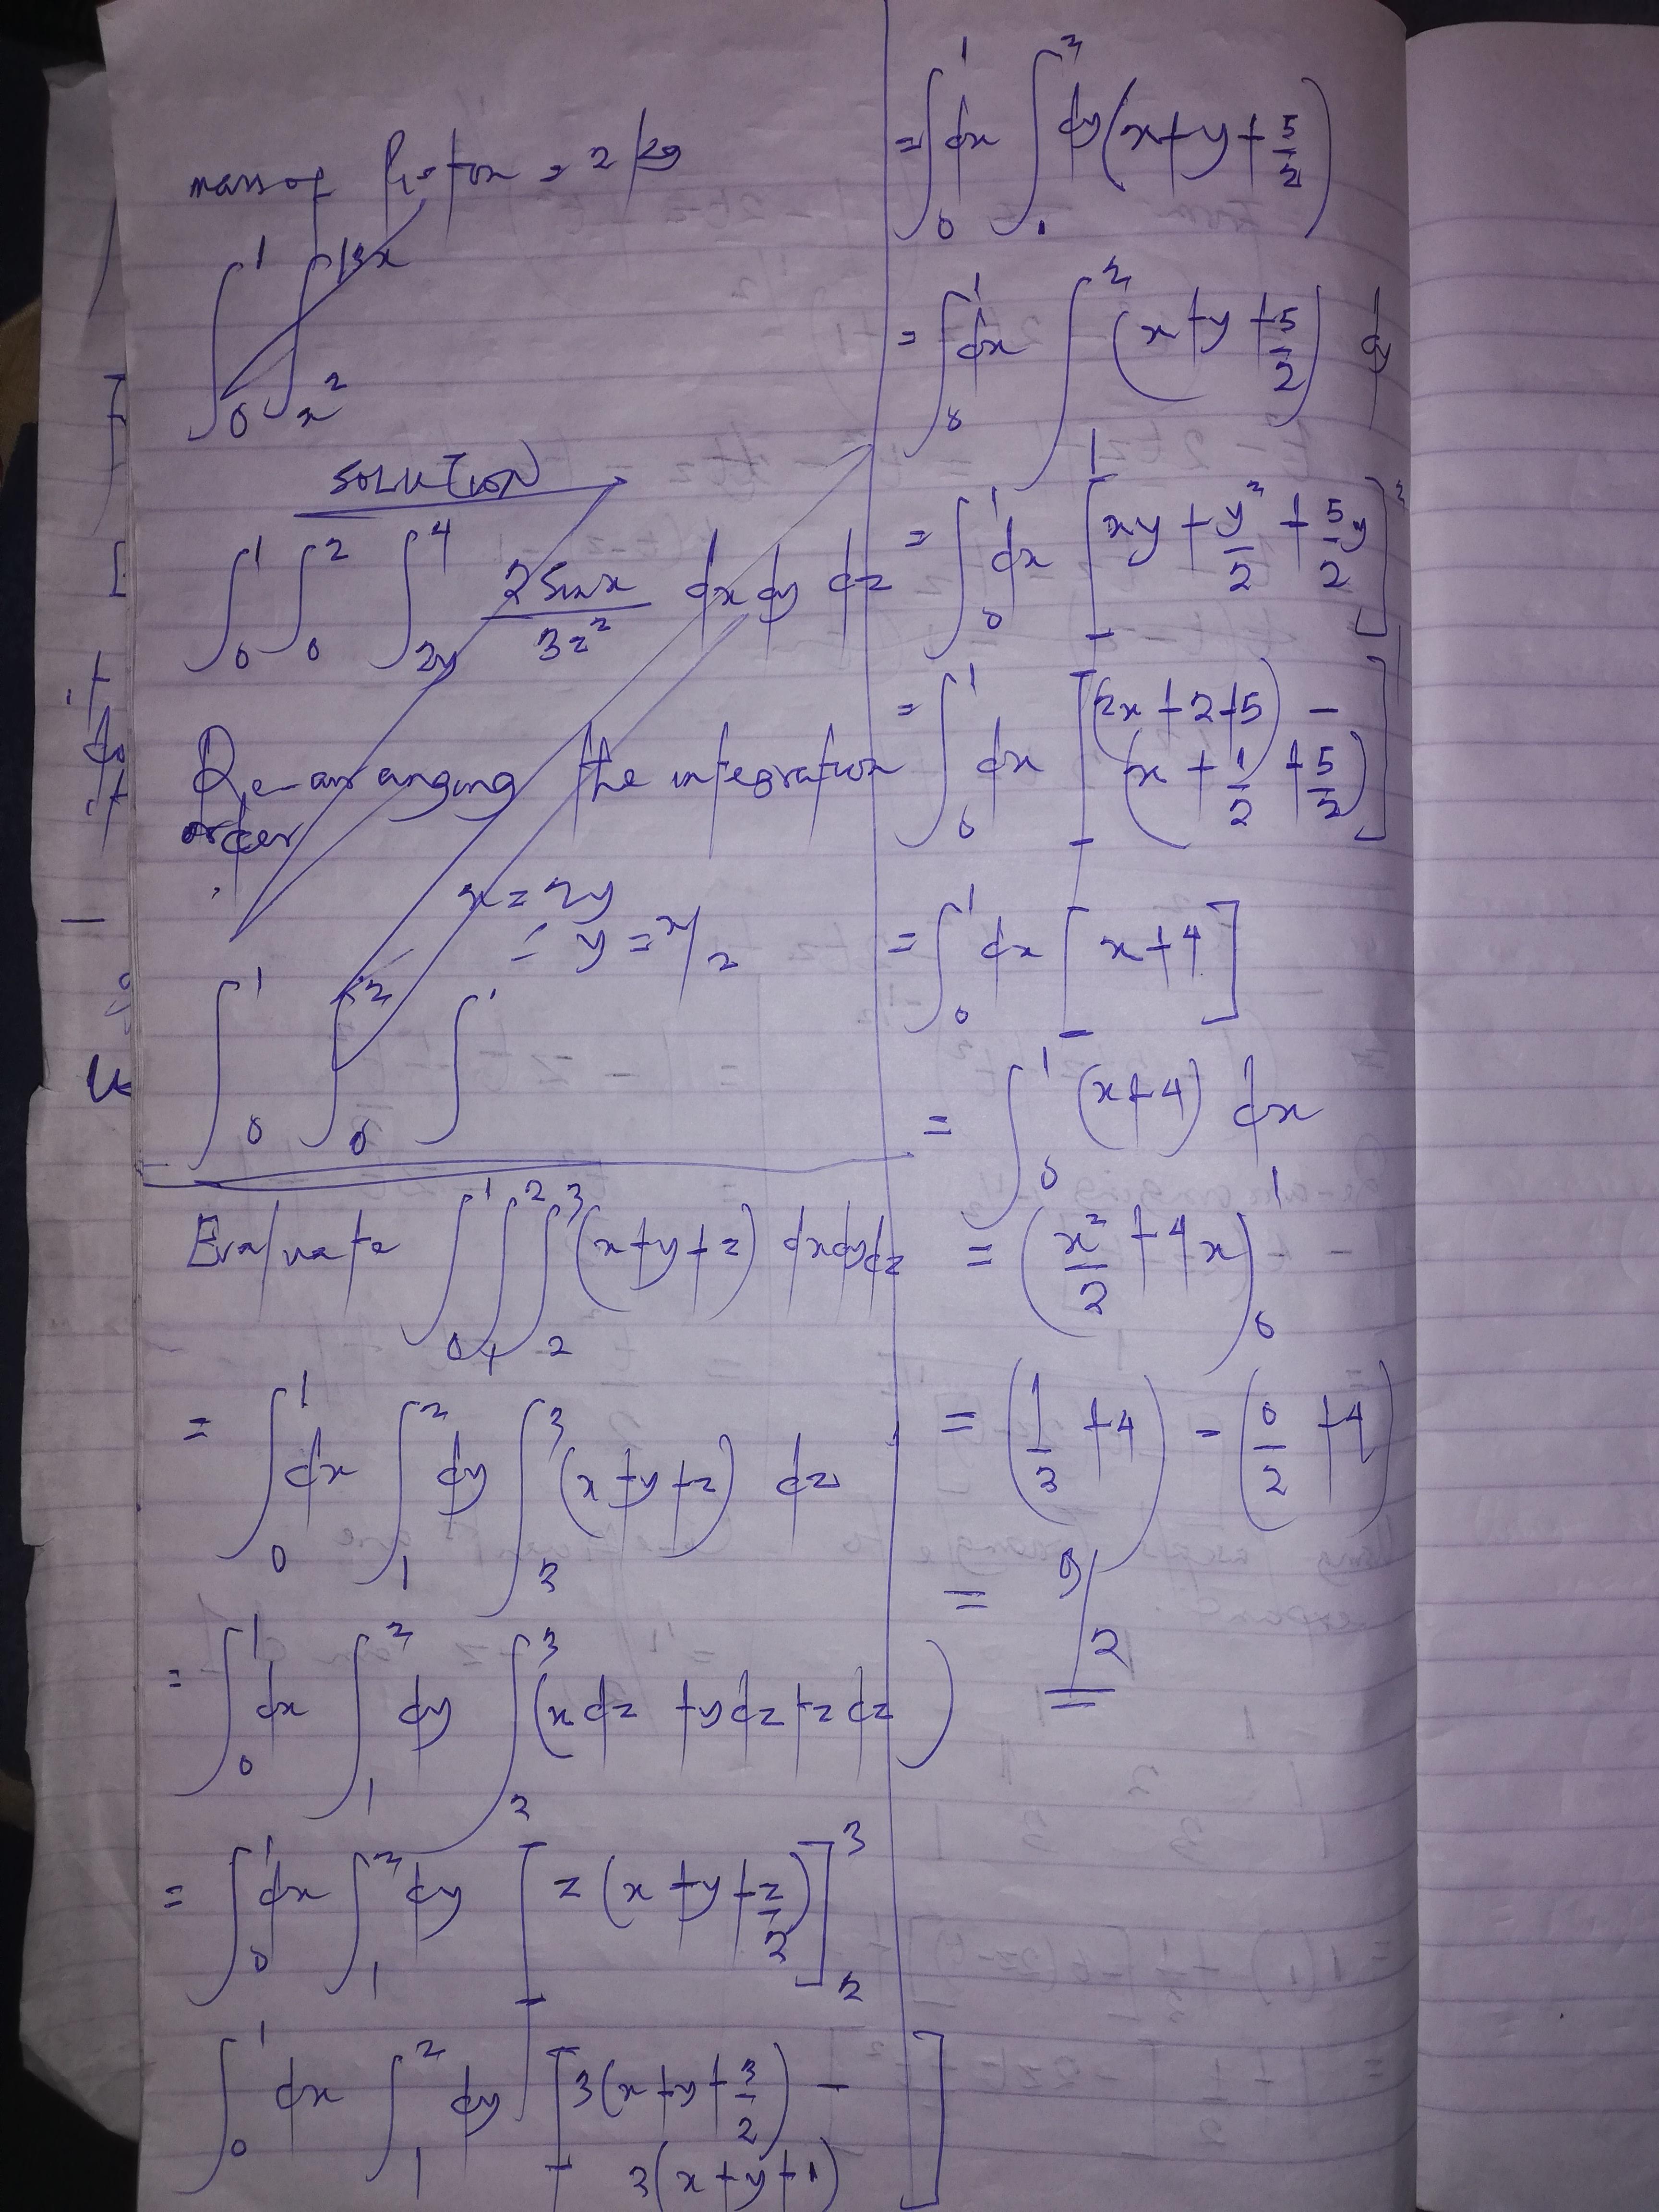 mass of Proton = 2 kg
∫₀¹ ∫_{x²}^{13x}
SOLUTION
∫₀¹ ∫₀² ∫_{2y}^4 2 Sin x / 3z² dx dy dz
Re-arranging the integration
order
x = 2y
= y = x/2
∫₀¹ ∫₀² ∫
Evaluate ∫₀¹ ∫₁² ∫₂³ (x+y+z) dxdydz
= ∫₀¹ dx ∫₁² dy ∫₂³ (x+y+z) dz
= ∫₀¹ dx ∫₁² dy ∫₂³ (x dz + y dz + z dz)
= ∫₀¹ dx ∫₁² dy [z (x+y+z/2)]₂³
∫₀¹ dx ∫₁² dy [3(x+y+3/2) -
2(x+y+1)]
= ∫₀¹ dx ∫₁² dy (x+y+5/2)
= ∫₀¹ dx ∫₁² (x+y+5/2) dy
= ∫₀¹ dx [xy + y²/2 + 5/2 y]₁²
= ∫₀¹ dx [(2x+2+5) -
(x + 1/2 + 5/2)]
= ∫₀¹ dx [x+4]
= ∫₀¹ (x+4) dx
= (x²/2 + 4x)₀¹
= (1/2 + 4) - (0/2 + 4)
= 9/2